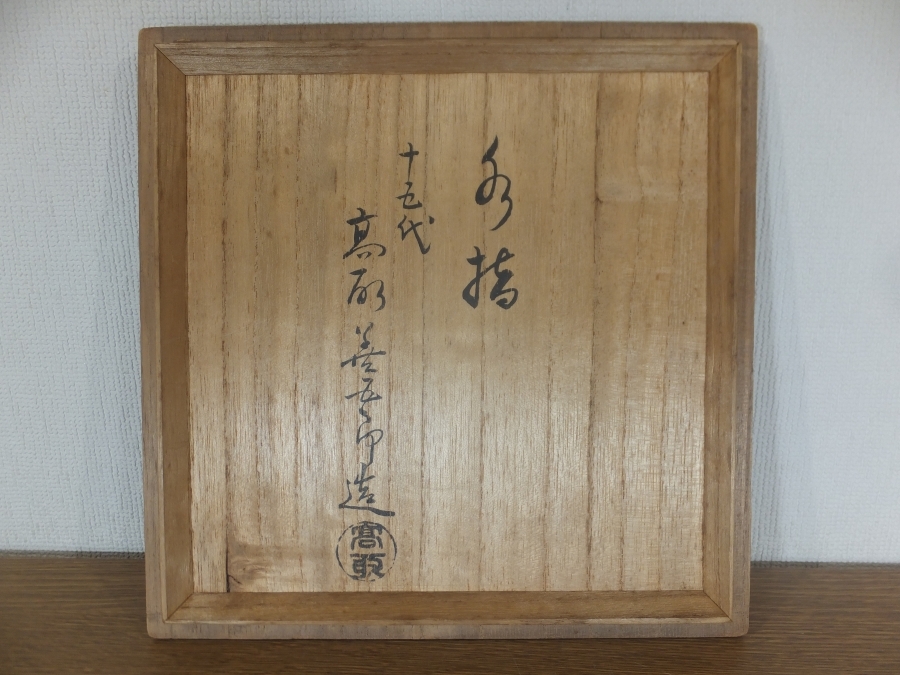 水指
十五代
高取善五郎造
高取